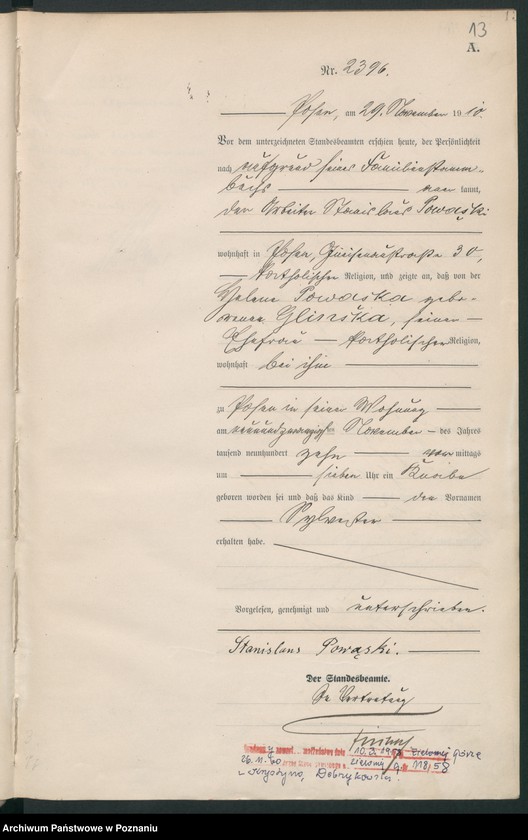 13
A.
Nr. 2396.
Posen, am 29. November 1910.
Vor dem unterzeichneten Standesbeamten erschien heute, der Persönlichkeit
nach aufgrund seines Familienstamm-
buchs kannt,
der Arbeiter Stanislaus Powąski
wohnhaft in Posen, Gneisenaustraße 30,
katholischer Religion, und zeigte an, daß von der
Helene Powąska gebo-
renen Glinska, seiner
Ehefrau katholischer Religion,
wohnhaft bei ihm
zu Posen in seiner Wohnung
am November des Jahres
tausend neunhundert zehn vormittags
um sieben Uhr ein Knabe
geboren worden sei und daß das Kind den Vornamen
Sylvester
erhalten habe.
Vorgelesen, genehmigt und unterschrieben.
Stanislaus Powąski.
Der Standesbeamte.
In Vertretung
10.2.19
26.11.60 118/58
Krystyną Dobrykowską
Archiwum Państwowe w Poznaniu
szukajwarchiwach.pl